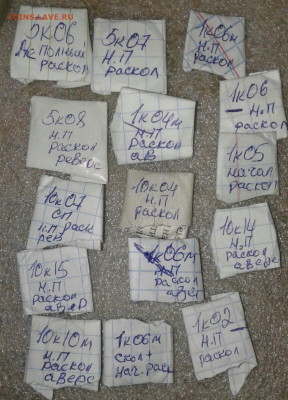 COINS.SAVE.RU
5к06
Дк полный
раскол
5к07
Н.П
раскол
1к06м
Н.П
раскол
5к08
Н.П
раскол
реверс
1к04м
Н.П
раскол
ав
1к06
Н.П
раскол
1к05
начал
раскол
10к07
СП
Н.П раск
рев
10к04
Н.П
раскол
10к14
Н.П
раскол
аверс
10к15
Н.П
раскол
авер
1к06м
Н.П
раскол
авер
10к10м
Н.П
раскол
аверс
1к06м
скол +
нач. раск
1к02
Н.П
раскол